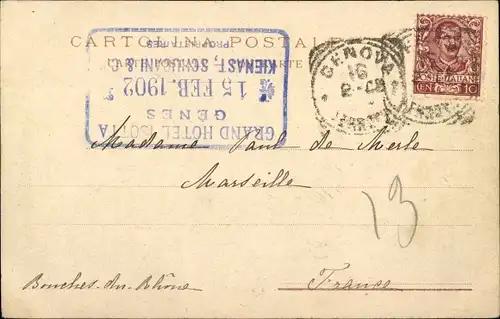 CARTOLINA POSTALE
GRAND HÔTEL ISOTTA
GÊNES
15 FEB. 1902
KIENAST, SCHUCAN & C.
PROPRIETAIRES
GENOVA
POSTE ITALIANE
CEN 10
Madame Paul de Merle
Marseille
13
Bouches-du-Rhône
France